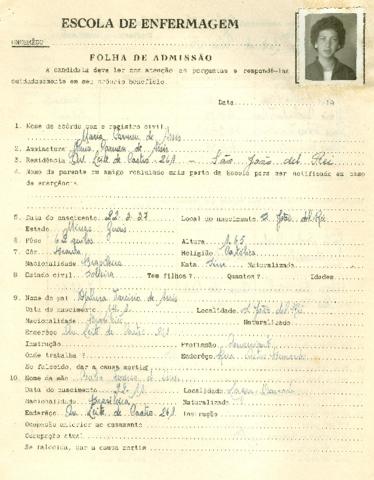 ESCOLA DE ENFERMAGEM
ENDERÊÇO
FOLHA DE ADMISSÃO
A candidata deve ler com atenção as perguntas e respondê-las
cuidadosamente em seu próprio benefício.
Data 19
1. Nome de acôrdo com o registro civil
Maria Carmen de Assis
2. Assinatura Maria Carmen de Assis
3. Residência Leite de Castro 261 - São João del Rei
4. Nome do parente ou amigo residindo mais perto da Escola para ser notificado em caso
de emergência
5. Data do nascimento 22-2-37 Local do nascimento S. João del-Rei
Estado Minas Gerais
6. Pêso 62 quilos Altura 1,65
7. Côr Branca Religião Católica
Nacionalidade Brasileira Nata Sim Naturalizada
8. Estado civil solteira Tem filhos? Quantos? Idades
9. Nome do pai Tarcísio de Assis
Data do nascimento Localidade S. João del-Rei
Nacionalidade Brasileiro Naturalizado
Enderêço Leite de Castro 261
Instrução Profissão
Onde trabalha? Enderêço
Se falecido, dar a causa mortis
10. Nome da mãe de Assis
Data do nascimento Localidade
Nacionalidade Brasileira Naturalizada
Enderêço Leite de Castro 261 Instrução
Ocupação anterior ao casamento
Ocupação atual
Se falecida, dar a causa mortis